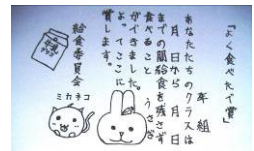 「よく食べたで賞」
年 組
あなたたちのクラスは
月 日から 月 日
までの間給食を残さず
食べること
ができました。
よってここに
賞します。
給食委員会
うさぎ
ミカネコ